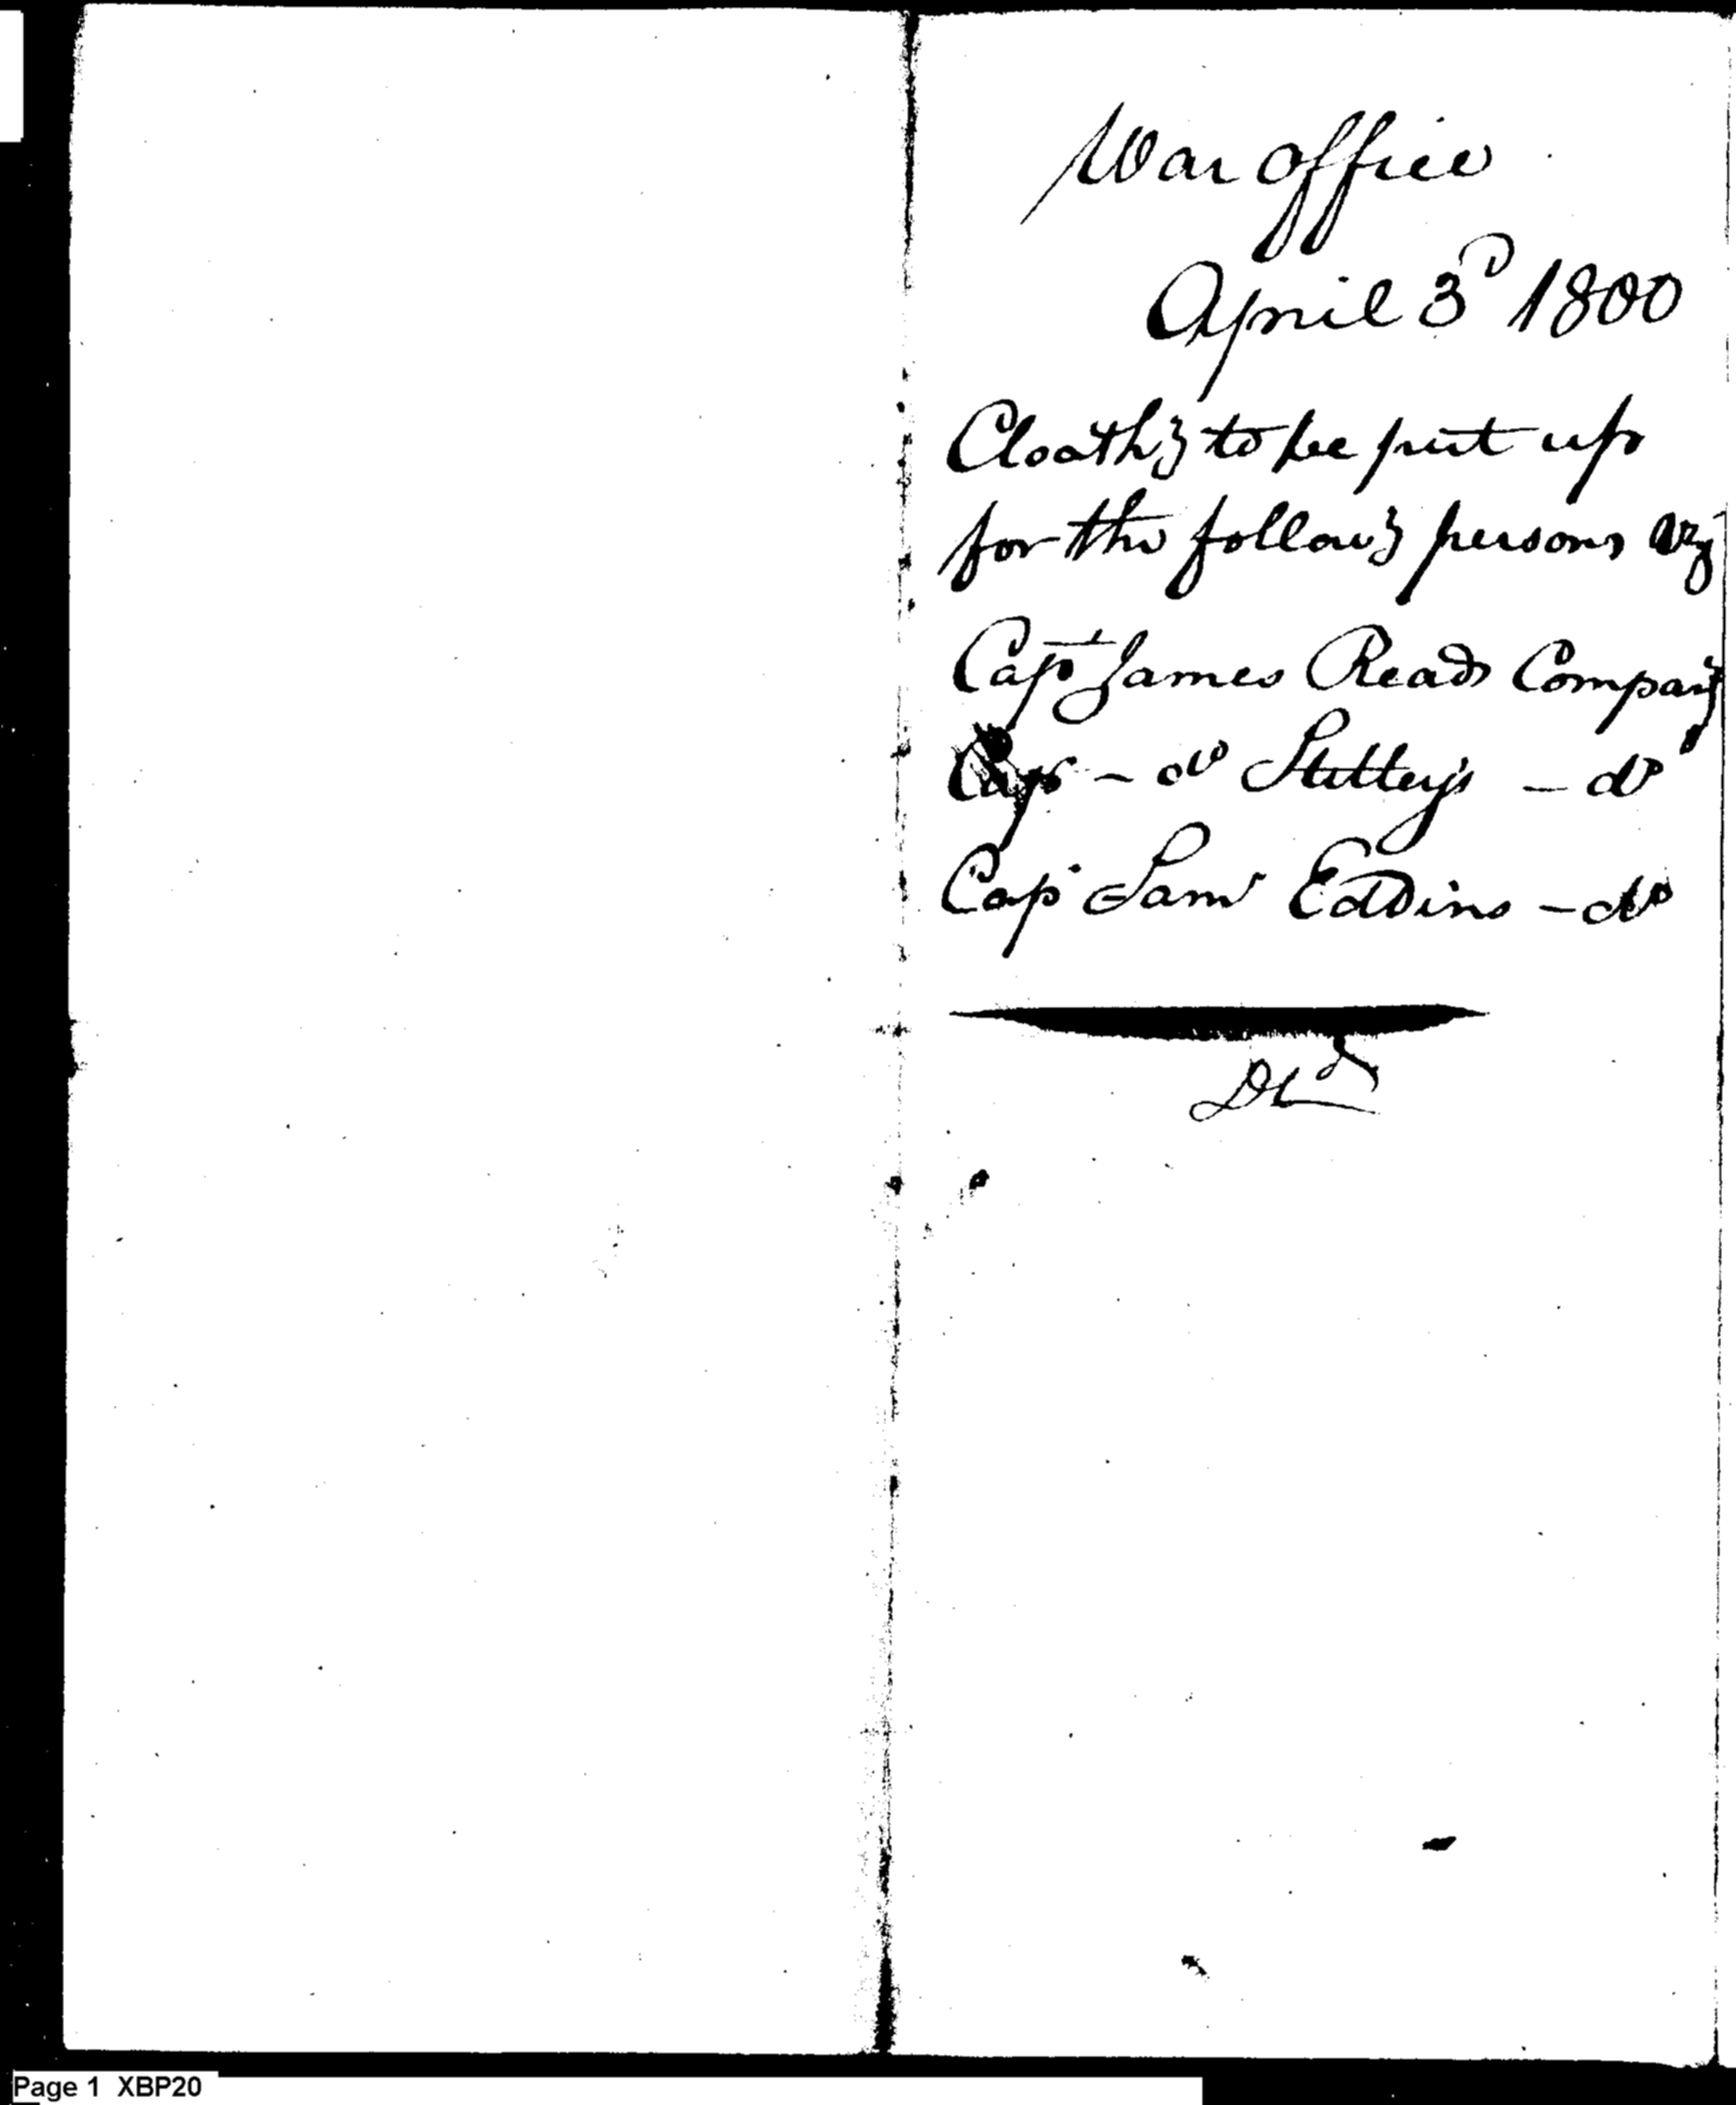 War office
April 3d 1800
Cloathg to be put up
for the followg persons viz
Capt James Reads Company
Capt - do Stelleys - do
Cap Saml Eddins - do
Page 1 XBP20